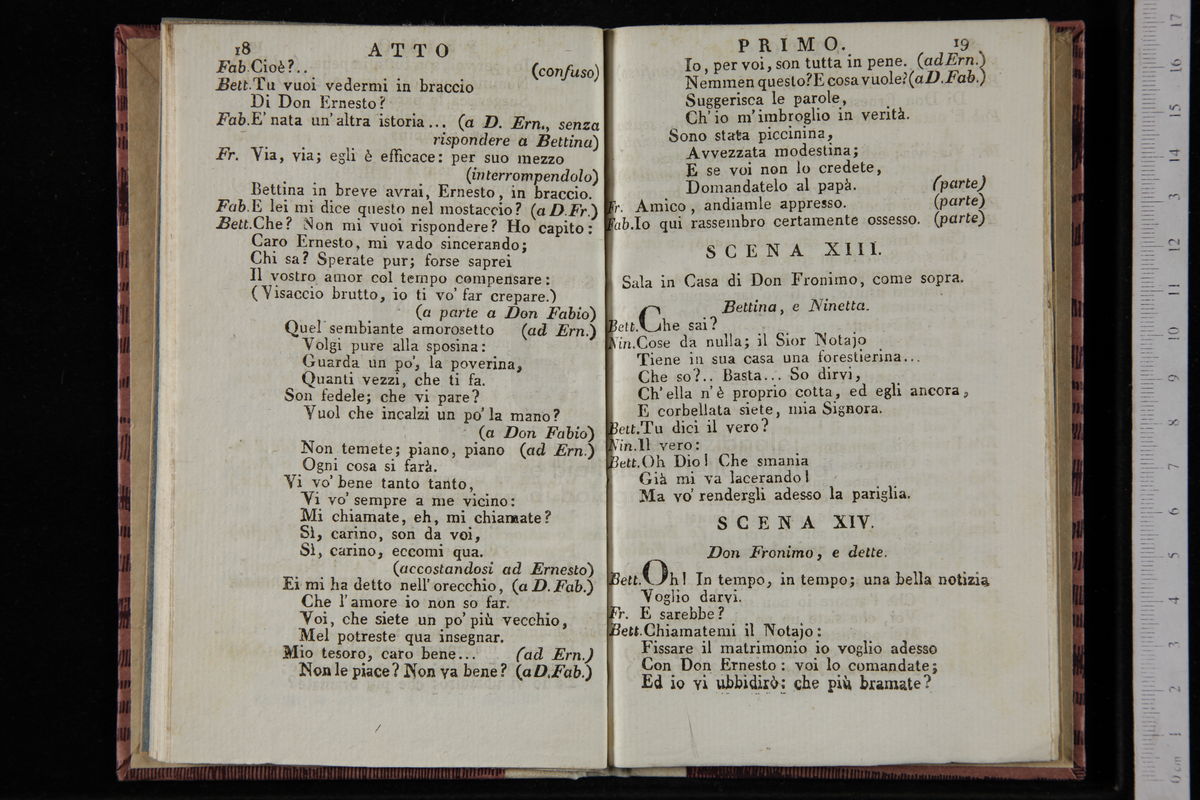 18 ATTO
Fab. Cioè?.. (confuso)
Bett. Tu vuoi vedermi in braccio
Di Don Ernesto?
Fab. E' nata un'altra istoria... (a D. Ern., senza
rispondere a Bettina)
Fr. Via, via; egli è efficace: per suo mezzo
(interrompendolo)
Bettina in breve avrai, Ernesto, in braccio.
Fab. E lei mi dice questo nel mostaccio? (a D. Fr.)
Bett. Che? Non mi vuoi rispondere? Ho capito:
Caro Ernesto, mi vado sincerando;
Chi sa? Sperate pur; forse saprei
Il vostro amor col tempo compensare:
(Visaccio brutto, io ti vo' far crepare.)
(a parte a Don Fabio)
Quel sembiante amorosetto (ad Ern.)
Volgi pure alla sposina:
Guarda un po', la poverina,
Quanti vezzi, che ti fa.
Son fedele; che vi pare?
Vuol che incalzi un po' la mano?
(a Don Fabio)
Non temete; piano, piano (ad Ern.)
Ogni cosa si farà.
Vi vo' bene tanto tanto,
Vi vo' sempre a me vicino:
Mi chiamate, eh, mi chiamate?
Sì, carino, son da voi,
Sì, carino, eccomi qua.
(accostandosi ad Ernesto)
Ei mi ha detto nell'orecchio, (a D. Fab.)
Che l'amore io non so far.
Voi, che siete un po' più vecchio,
Mel potreste qua insegnar.
Mio tesoro, caro bene... (ad Ern.)
Non le piace? Non va bene? (a D. Fab.)
PRIMO. 19
Io, per voi, son tutta in pene. (ad Ern.)
Nemmen questo? E cosa vuole? (a D. Fab.)
Suggerisca le parole,
Ch'io m'imbroglio in verità.
Sono stata piccinina,
Avvezzata modestina;
E se voi non lo credete,
Domandatelo al papà. (parte)
Fr. Amico, andiamle appresso. (parte)
Fab. Io qui rassembro certamente ossesso. (parte)
SCENA XIII.
Sala in Casa di Don Fronimo, come sopra.
Bettina, e Ninetta.
Bett. Che sai?
Nin. Cose da nulla; il Sior Notajo
Tiene in sua casa una forestierina...
Che so?.. Basta... So dirvi,
Ch'ella n'è proprio cotta, ed egli ancora,
E corbellata siete, mia Signora.
Bett. Tu dici il vero?
Nin. Il vero:
Bett. Oh Dio! Che smania
Già mi va lacerando!
Ma vo' rendergli adesso la pariglia.
SCENA XIV.
Don Fronimo, e dette.
Bett. Oh! In tempo, in tempo; una bella notizia
Voglio darvi.
Fr. E sarebbe?
Bett. Chiamatemi il Notajo:
Fissare il matrimonio io voglio adesso
Con Don Ernesto: voi lo comandate;
Ed io vi ubbidirò: che più bramate?
0 cm 1 2 3 4 5 6 7 8 9 10 11 12 13 14 15 16 17